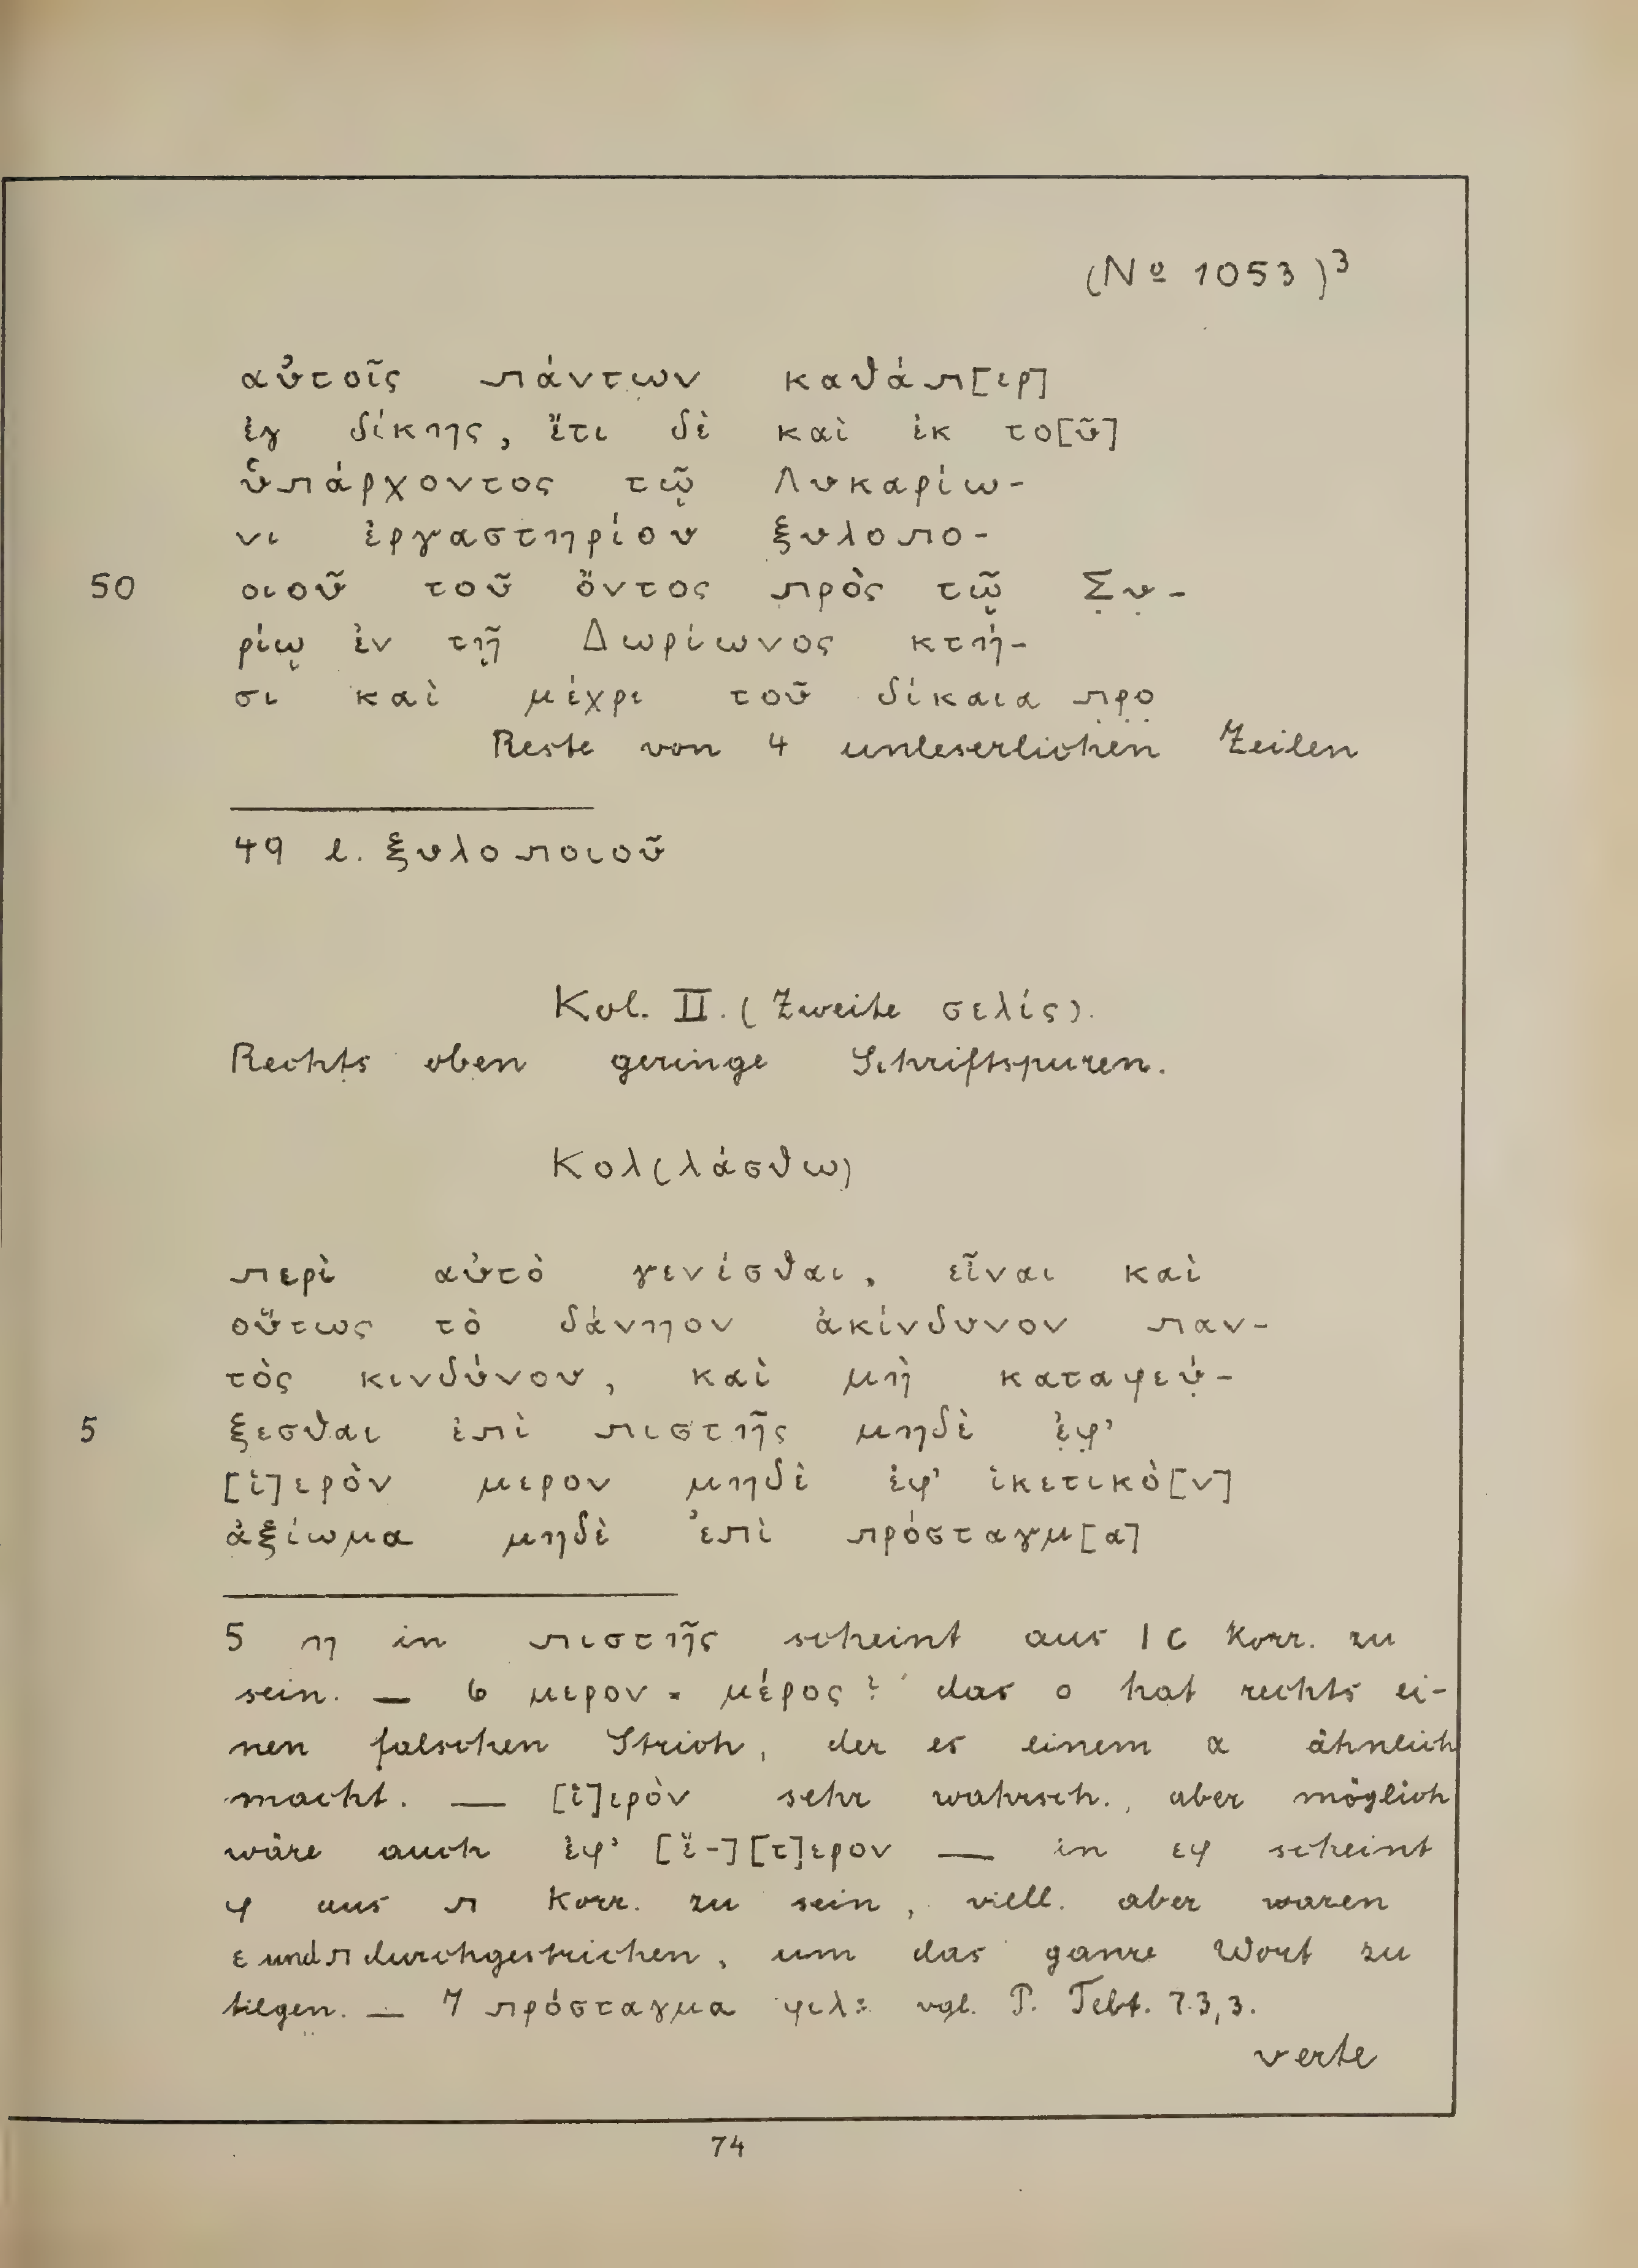 (Nº 1053)³
αὐτοῖς πάντων καθάπ[ερ]
ἐγ δίκης, ἔτι δὲ καὶ ἐκ το[ῦ]
ὑπάρχοντος τῷ Λυκαρίω-
νι ἐργαστηρίου ξυλοπο-
50 οιοῦ τοῦ ὄντος πρὸς τῷ Σ̣υ̣-
ρίῳ ἐν τῇ Δωρίωνος κτή-
σι καὶ μέχρι τοῦ δίκαια π̣ρ̣ο̣
Reste von 4 unleserlichen Zeilen
49 l. ξυλοποιοῦ
Kol. II. (Zweite σελίς).
Rechts oben geringe Schriftspuren.
Κολ(λάσθω)
περὶ αὐτὸ γενέσθαι, εἶναι καὶ
οὕτως τὸ δάνηον ἀκίνδυνον παν-
τὸς κινδύνου, καὶ μὴ καταφεύ̣-
5 ξεσθαι ἐπὶ πιστῆς μηδὲ ἐ̣φ̣’
[ἱ]ερὸν μερον μηδὲ ἐφ’ ἱκετικὸ[ν]
ἀξίωμα μηδὲ ἐπὶ πρόσταγμ[α]
5 η in πιστῆς scheint aus ΙC korr. zu
sein. — 6 μερον = μέρος? das ο hat rechts ei-
nen falschen Strich, der es einem α ähnlich
macht. — [ἱ]ερὸν sehr wahrsch., aber möglich
wäre auch ἐφ’ [ἕ-][τ]ερον — in εφ scheint
φ aus π korr. zu sein, viell. aber waren
ε und π durchgestrichen, um das ganze Wort zu
tilgen. — 7 πρόσταγμα φιλ: vgl. P. Tebt. 7.3,3.
verte
74